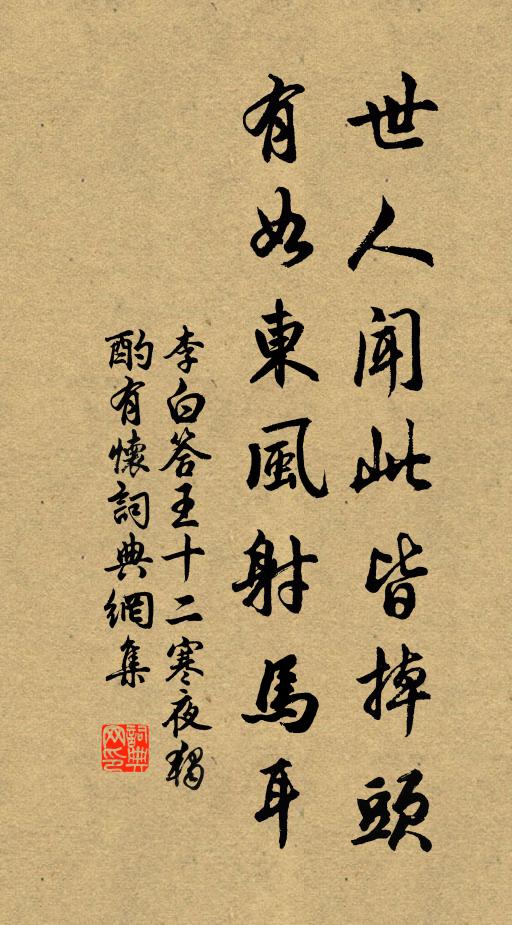 世人聞此皆掉頭
有如東風射馬耳
李白答王十二寒夜獨
酌有懷詞典網集
詞典網印